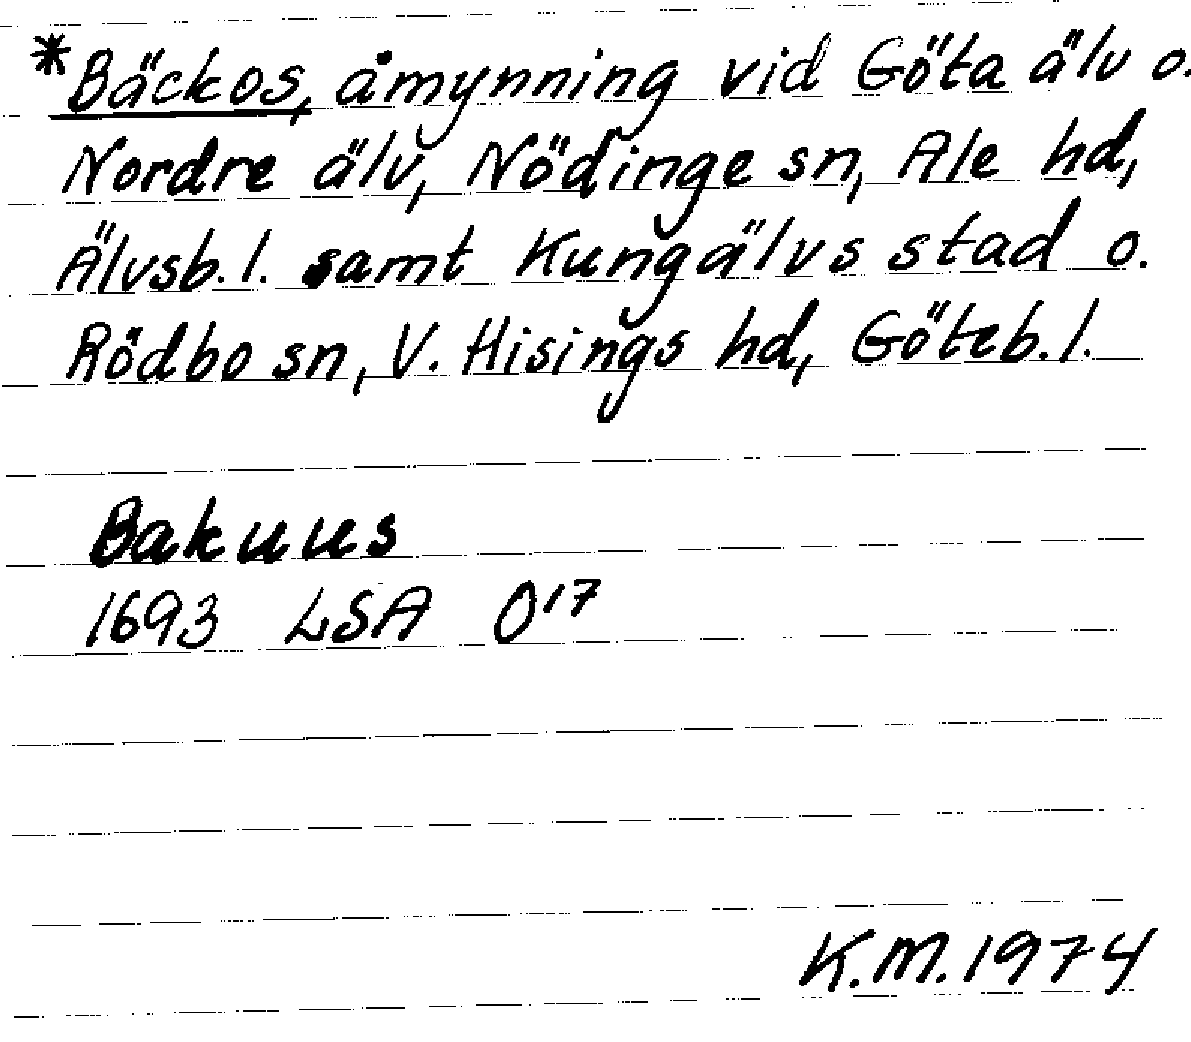 *Bäckos, åmynning vid Göta älv o.
Nordre älv, Nödinge sn, Ale hd,
Älvsb. l. samt Kungälvs stad o.
Rödbo sn, V. Hisings hd, Göteb. l.
Bakuus
1693 LSA O17
K.M. 1974